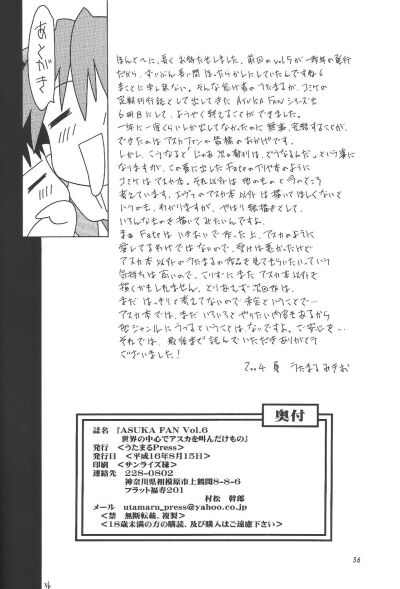 あとがき
ほんとーに、長くお待たせしました。前回のvol.5が一昨年の発行
だから、ずいぶん長い間ほったらかしにしていたんですね。
まことに申し訳ない。そんな怠け者のうたまるが、コミケの
定期刊行誌として出してきたASUKA FANシリーズも
6冊目にして、ようやく終えることができました。
一年に一度くらいしか出してなかったのに無事、完結することが
できたのはアスカファンの皆様のおかげです。
しかし、こうなると「じゃあ次の新刊は、どうなるんだ」という事に
なりますが、この春に出したFateのイリヤ本のように
コミケはアスカ本。それ以外は他のものと今のところ
考えています。エヴァのアスカ以外は描いてほしくないと
いうのも、わかりますが、やはり絵描きとして、
いろんなものを描いてみたいんですよ。
まぁFateはいきおいで作った上、アスカのように
愛してるわけではないので、受けは悪かったけど
アスカ本以外のうたまるの作品を見てもらいたいっていう
気持ちは高いので、こりずにまたアスカ本以外を
描くかもしれません。とりあえず次回作は、
まだはっきりと考えてないので未定ということで…
アスカ本では、まだいろいろとやりたい内容もあるから
他ジャンルにうつるということは、ないですよ。ご安心を…
それでは、最後まで読んでいただきありがとう
ございました！
2004 夏 うたまるみきお
奥付
誌名 『ASUKA FAN Vol.6
世界の中心でアスカを叫んだけもの』
発行 ＜うたまるPress＞
発行日 ＜平成16年8月15日＞
印刷 ＜サンライズ様＞
連絡先 228-0802
神奈川県相模原市上鶴間8-8-6
フラット福寿201
村松 幹郎
メール utamaru_press@yahoo.co.jp
＜禁 無断転載、複製＞
＜18歳未満の方の購読、及び購入はご遠慮下さい＞
36
36